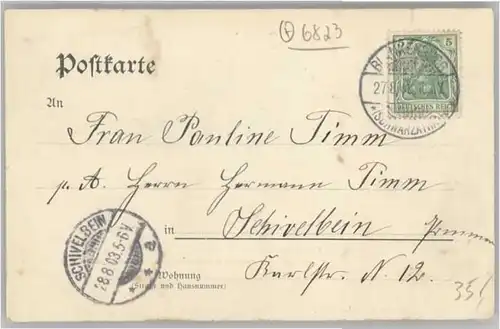 ⊕ 6823
Postkarte
5
DEUTSCHES REICH
BLANKENBURG
27.8.
(SCHWARZATHAL)
An
Frau Pauline Timm
p. A. Herrn Hermann Timm
in Schivelbein
Pommern
SCHIVELBEIN
28.8.03.5-6V.
a
Wohnung
(Straße und Hausnummer)
Karlstr. N. 12.
35/